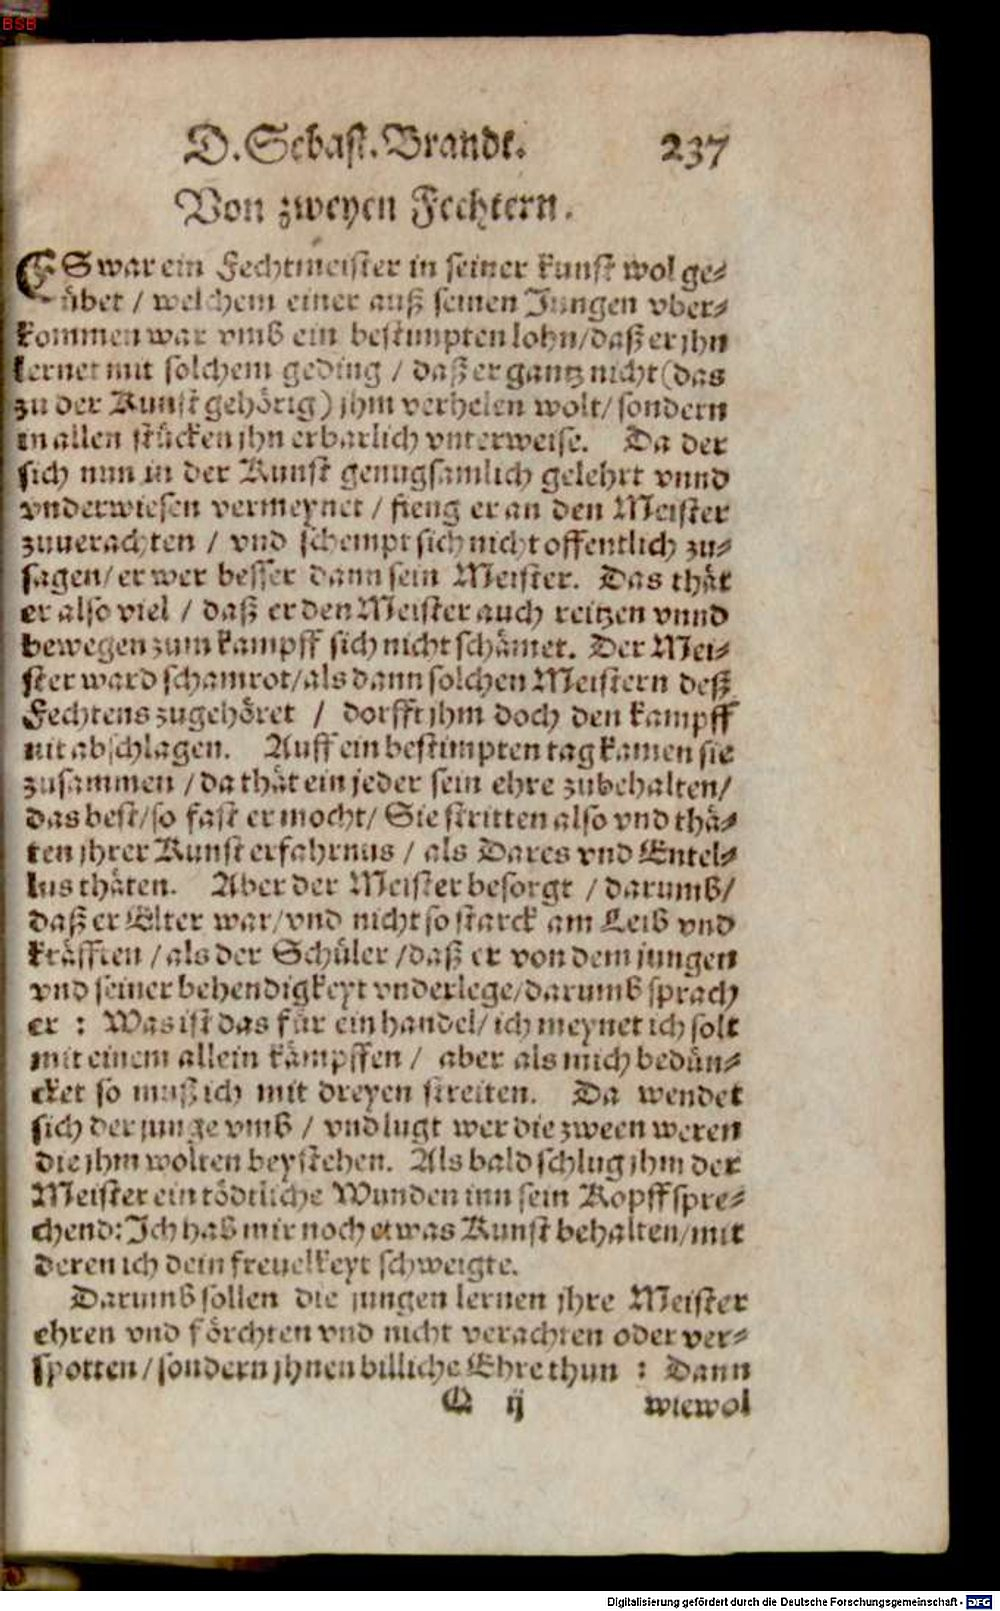 BSB
D. Sebast. Brandt. 237
Von zweyen Fechtern.
ES war ein Fechtmeister in seiner kunst wol ge-
übet / welchem einer auß seinen Jungen vber-
kommen war vmb ein bestimpten lohn/daß er jhn
lernet mit solchem geding / daß er gantz nicht (das
zu der Kunst gehörig) jhm verhelen wolt/sondern
in allen stücken jhn erbarlich vnterweise. Da der
sich nun in der Kunst genugsamlich gelehrt vnnd
vnderwiesen vermeynet / fieng er an den Meister
zuuerachten / vnd schempt sich nicht offentlich zu-
sagen/ er wer besser dann sein Meister. Das thät
er also viel / daß er den Meister auch reitzen vnnd
bewegen zum kampff sich nicht schämet. Der Mei-
ster ward schamrot/als dann solchen Meistern deß
Fechtens zugehöret / dorfft jhm doch den kampff
nit abschlagen. Auff ein bestimpten tag kamen sie
zusammen / da thät ein jeder sein ehre zubehalten/
das best/so fast er mocht/ Sie stritten also vnd thä-
ten jhrer Kunst erfahrnus / als Dares vnd Entel-
lus thäten. Aber der Meister besorgt / darumb/
daß er Elter war/vnd nicht so starck am Leib vnd
kräfften / als der Schüler /daß er von dem jungen
vnd seiner behendigkeyt vnderlege/darumb sprach
er : Was ist das für ein handel/ ich meynet ich solt
mit einem allein kämpffen / aber als mich bedün-
cket so muß ich mit dreyen streiten. Da wendet
sich der junge vmb / vnd lugt wer die zween weren
die jhm wolten beystehen. Als bald schlug jhm der
Meister ein tödtliche Wunden inn sein Kopff spre-
chend: Ich hab mir noch etwas Kunst behalten/mit
deren ich dein freuelkeyt schweigte.
Darumb sollen die jungen lernen jhre Meister
ehren vnd förchten vnd nicht verachten oder ver-
spotten/sondern jhnen billiche Ehre thun : Dann
Q ij wiewol
Digitalisierung gefördert durch die Deutsche Forschungsgemeinschaft - DFG